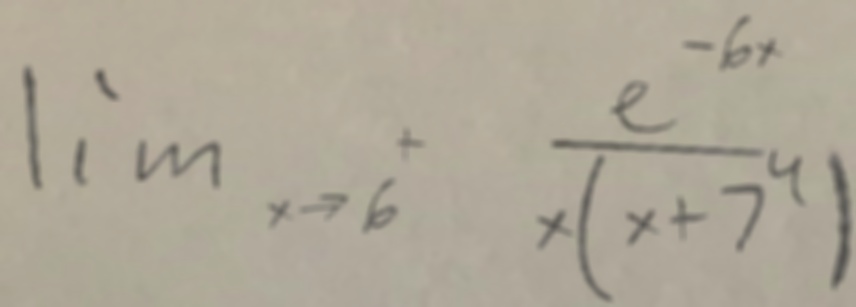 lim x→6⁺ e^{-6x} / x(x+7⁴)